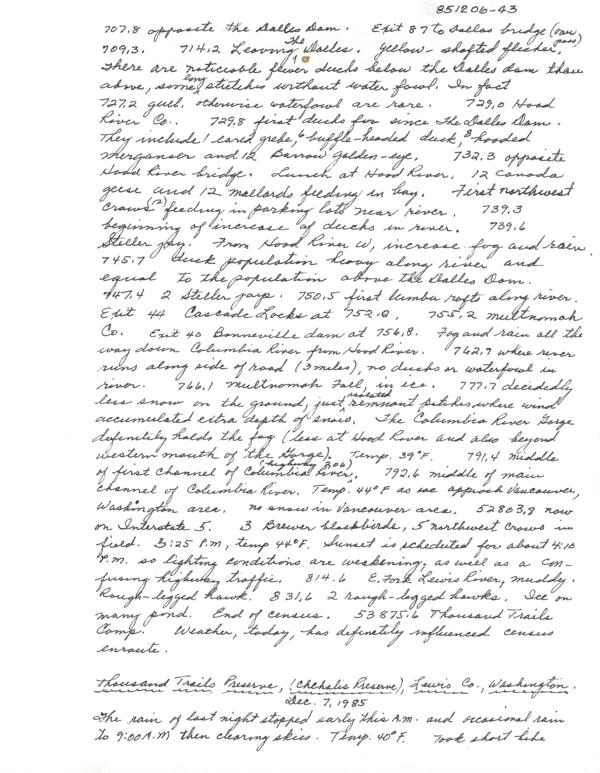 851206-43
707.8 opposite the Dalles Dam. Exit 87 to Dallas bridge (over
709.3. 714.2 Leaving The Dalles. yellow-shafted flicker,
There are noticeable fewer ducks below the Dalles dam than
above, some long stretches without water fowl. In fact
727.2 gull, otherwise waterfowl are rare. 729.0 Hood
River Co.. 729.8 first ducks for since The Dalles Dam.
They include 1 eared grebe, 6 buffle-headed duck, 8 hooded
merganser and 12 Barrow golden-eye. 732.3 opposite
Hood River bridge. Lunch at Hood River. 12 Canada
geese and 12 mallards feeding in bay. First northwest
crows (2) feeding in parking lots near river. 739.3
beginning of increase of ducks in river. 739.6
Steller jay. From Hood River W, increase fog and rain.
745.7 duck population heavy along river and
equal to the population above the Dalles Dam.
747.4 2 Steller jays. 750.5 first lumba rafts along river.
Exit 44 Cascade Locks at 752.0. 755.2 multnomah
Co. Exit 40 Bonneville dam at 756.8. Fog and rain all the
way down Columbia River from Hood River. 762.7 where river
runs along side of road (3 miles), no ducks or waterfowl in
river. 766.1 multnomah Fall, in ice. 777.7 decidedly
less snow on the ground, just isolated remnant patches where wind
accumulated extra depth of snow. The Columbia River Gorge
definitely holds the fog (less at Hood River and also beyond
western mouth of the Gorge). Temp. 39°F. 791.4 middle
of first channel of Columbia River (highway 206). 792.6 middle of main
channel of Columbia River. Temp. 44°F as we approch Vancouver,
Washington area. no snow in Vancouver area. 52803.8 now
on Interstate 5. 3 Brewer blackbirds, 5 northwest crows in
field. 3:25 P.M., temp 44°F. Sunset is scheduled for about 4:10
P.M. so lighting conditions are weakening, as well as a con-
fusing highway traffic. 814.6 E. Fork Lewis River, muddy.
Rough-legged hawk. 831.6 2 rough-legged hawks. Ice on
many pond. End of census. 53875.6 Thousand Trails
Camp. Weather, today, has definitely influenced census
enroute.
Thousand Trails Preserve, (Chehalis Preserve), Lewis Co., Washington.
Dec. 7, 1985
The rain of last night stopped early this A.M. and occasional rain
to 9:00 A.M then clearing skies. Temp. 40°F. Took short hike